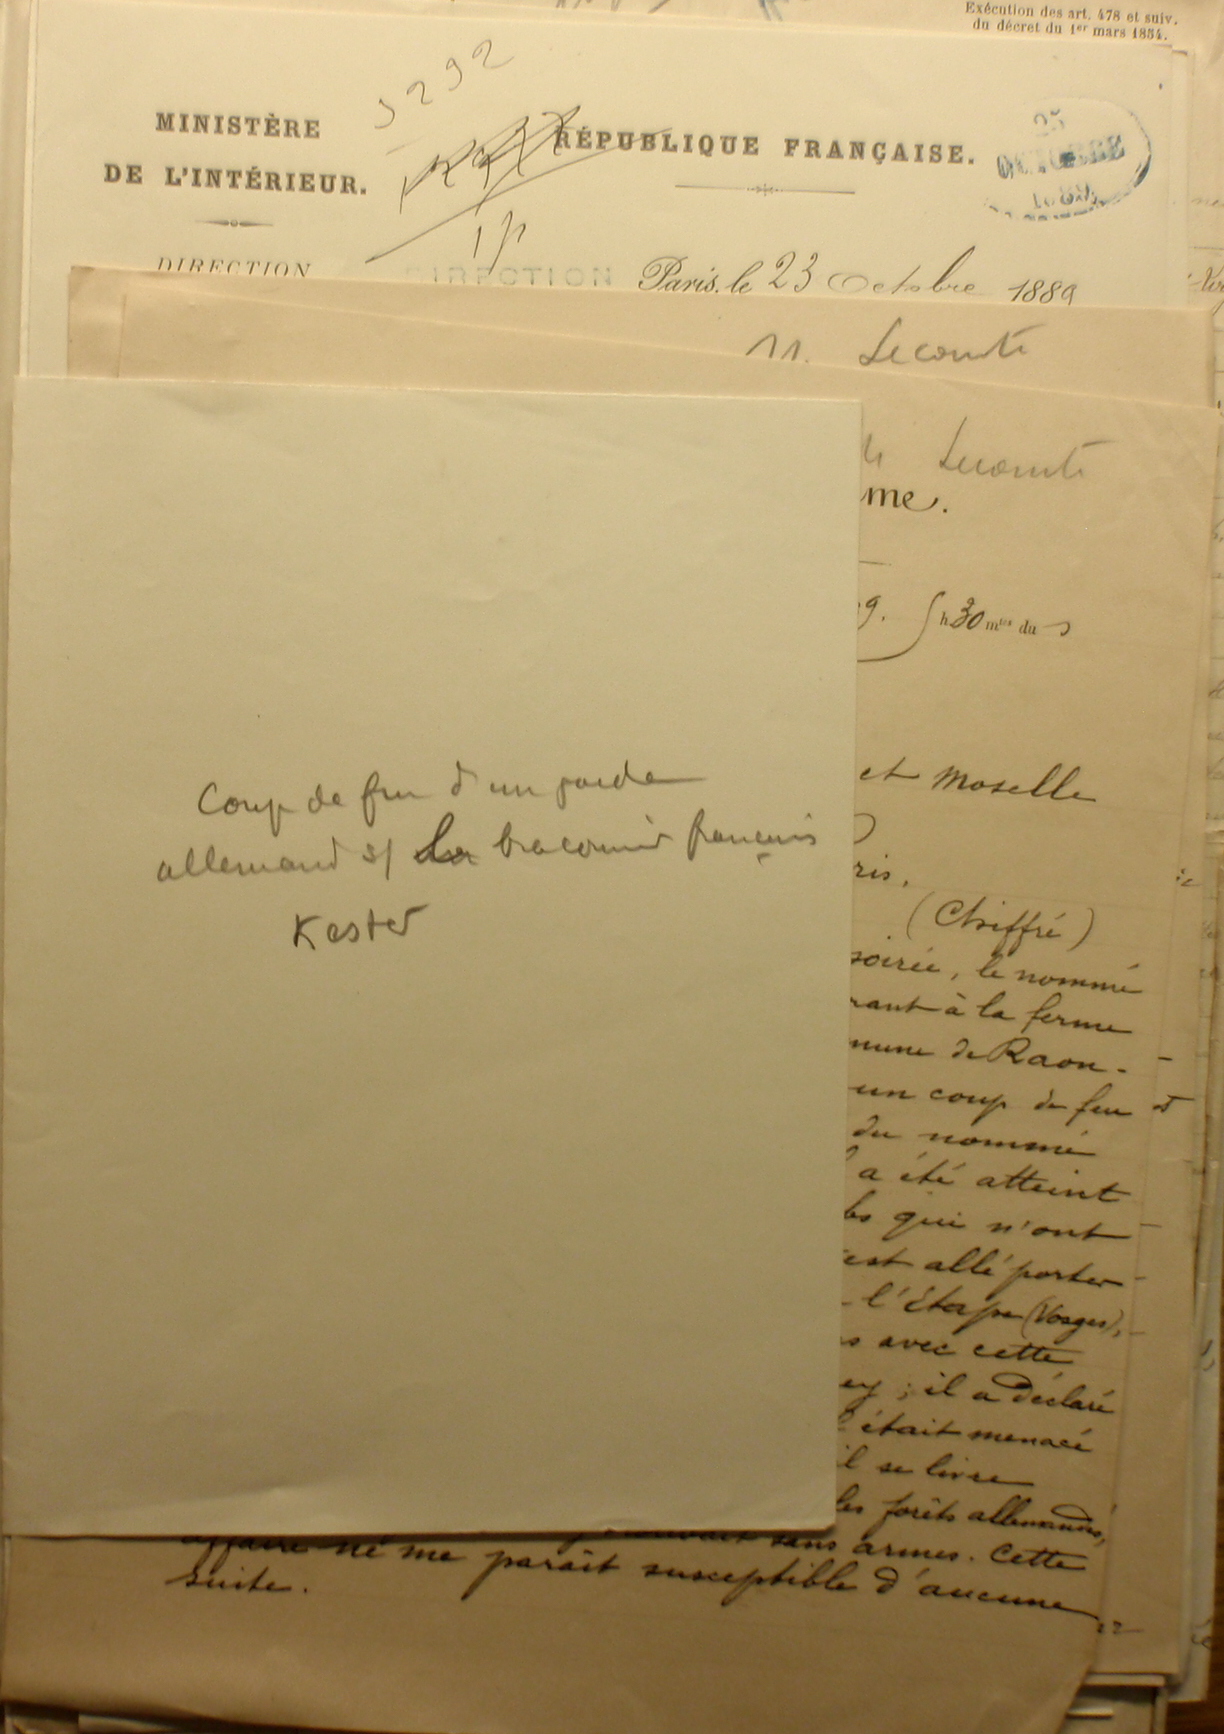 Exécution des art. 478 et suiv.
du décret du 1er mars 1854.
5292
MINISTÈRE
DE L'INTÉRIEUR.
RÉPUBLIQUE FRANÇAISE.
25
OCTOBRE
1889
DIRECTION
DIRECTION
Paris, le 23 Octobre 1889
M. Lecomte
Lecomte
me.
9. 5 h 30 mes du s
et Moselle
ris.
(Chiffré)
soirée, le nommé
rant à la ferme
mune de Raon-
un coup de feu
du nommé
a été atteint
qui n'ont
est allé porter
l'Etape (Vosges),
avec cette
ey ; il a déclaré
était menacé
il se livre
les forêts allemandes,
sans armes. Cette
affaire ne me paraît susceptible d'aucune
suite.
Coup de feu d'un garde
allemand s/ le braconnier français
Kester